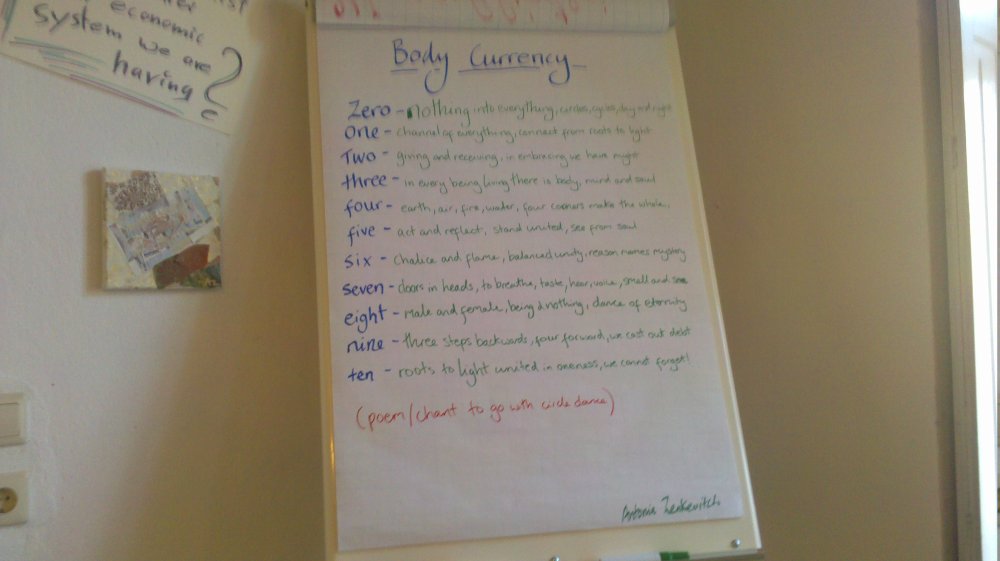 economic
system we are
having?
Body Currency
Zero - Nothing into everything, circles, cycles, day and night
one - channel of everything, connect from roots to light
Two - giving and receiving, in embracing we have might
three - in every being living there is body, mind and soul
four - earth, air, fire, water, four corners make the whole,
five - act and reflect, stand united, see from soul
six - Chalice and flame, balanced unity, reason names mystery
seven - doors in heads, to breathe, taste, hear, voice, smell and see
eight - male and female, being & nothing, dance of eternity
nine - three steps backwards, four forward, we cast out debt
ten - roots to light united in oneness, we cannot forget!
(poem/chant to go with circle dance)
Antonia Zenkevitch